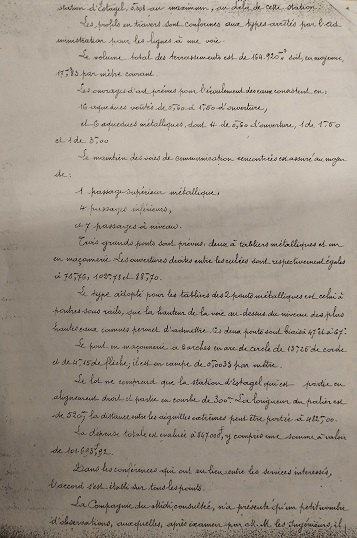 station d'Estagel, est au maximum, au delà de cette station.
Les profils en travers sont conformes aux types arrêtés par l'ad
ministration pour les lignes à une voie.
Le volume total des terrassements est de 164.920m3 soit, en moyenne,
par mètre courant.
Les ouvrages d'art prévus pour l'écoulement des eaux consistent en:
16 aqueducs voûtés de 0,60 à 1,50 d'ouverture,
et 6 aqueducs métalliques, dont 4 de 0,60 d'ouverture, 1 de 1,50
et 1 de 3,00
Le maintien des voies de communication rencontrées est assuré au moyen
de:
1 passage supérieur métallique,
4 passages inférieurs,
et 7 passages à niveau.
Trois grands ponts sont prévus: deux à tabliers métalliques et un
en maçonnerie. Les ouvertures droites entre les culées sont respectivement égales
à
Le type adopté pour les tabliers des 2 ponts métalliques est celui à
poutres sous rails, que la hauteur de la voie au-dessus du niveau des plus
hautes eaux connues permet d'admettre. Ces deux ponts sont biais à 47° et à 67°.
Le pont en maçonnerie a 6 arches en arc de cercle de de corde
et de de flèche; il est en rampe de 0,0033 par mètre.
Le lot ne comprend que la station d'Estagel qui est partie en
alignement droit et partie en courbe de 300m. La longueur du palier est
de 520m, la distance entre les aiguilles extrêmes peut être portée à 412,00.
La dépense totale est évaluée à 807.000f, y compris une somme à valoir
de
Dans les conférences qui ont eu lieu entre les services intéressés,
l'accord s'est établi sur tous les points.
La Compagnie du Midi consultée, n'a présenté qu'un petit nombre
d'observations, auxquelles, après examen par M.M. les Ingénieurs, il